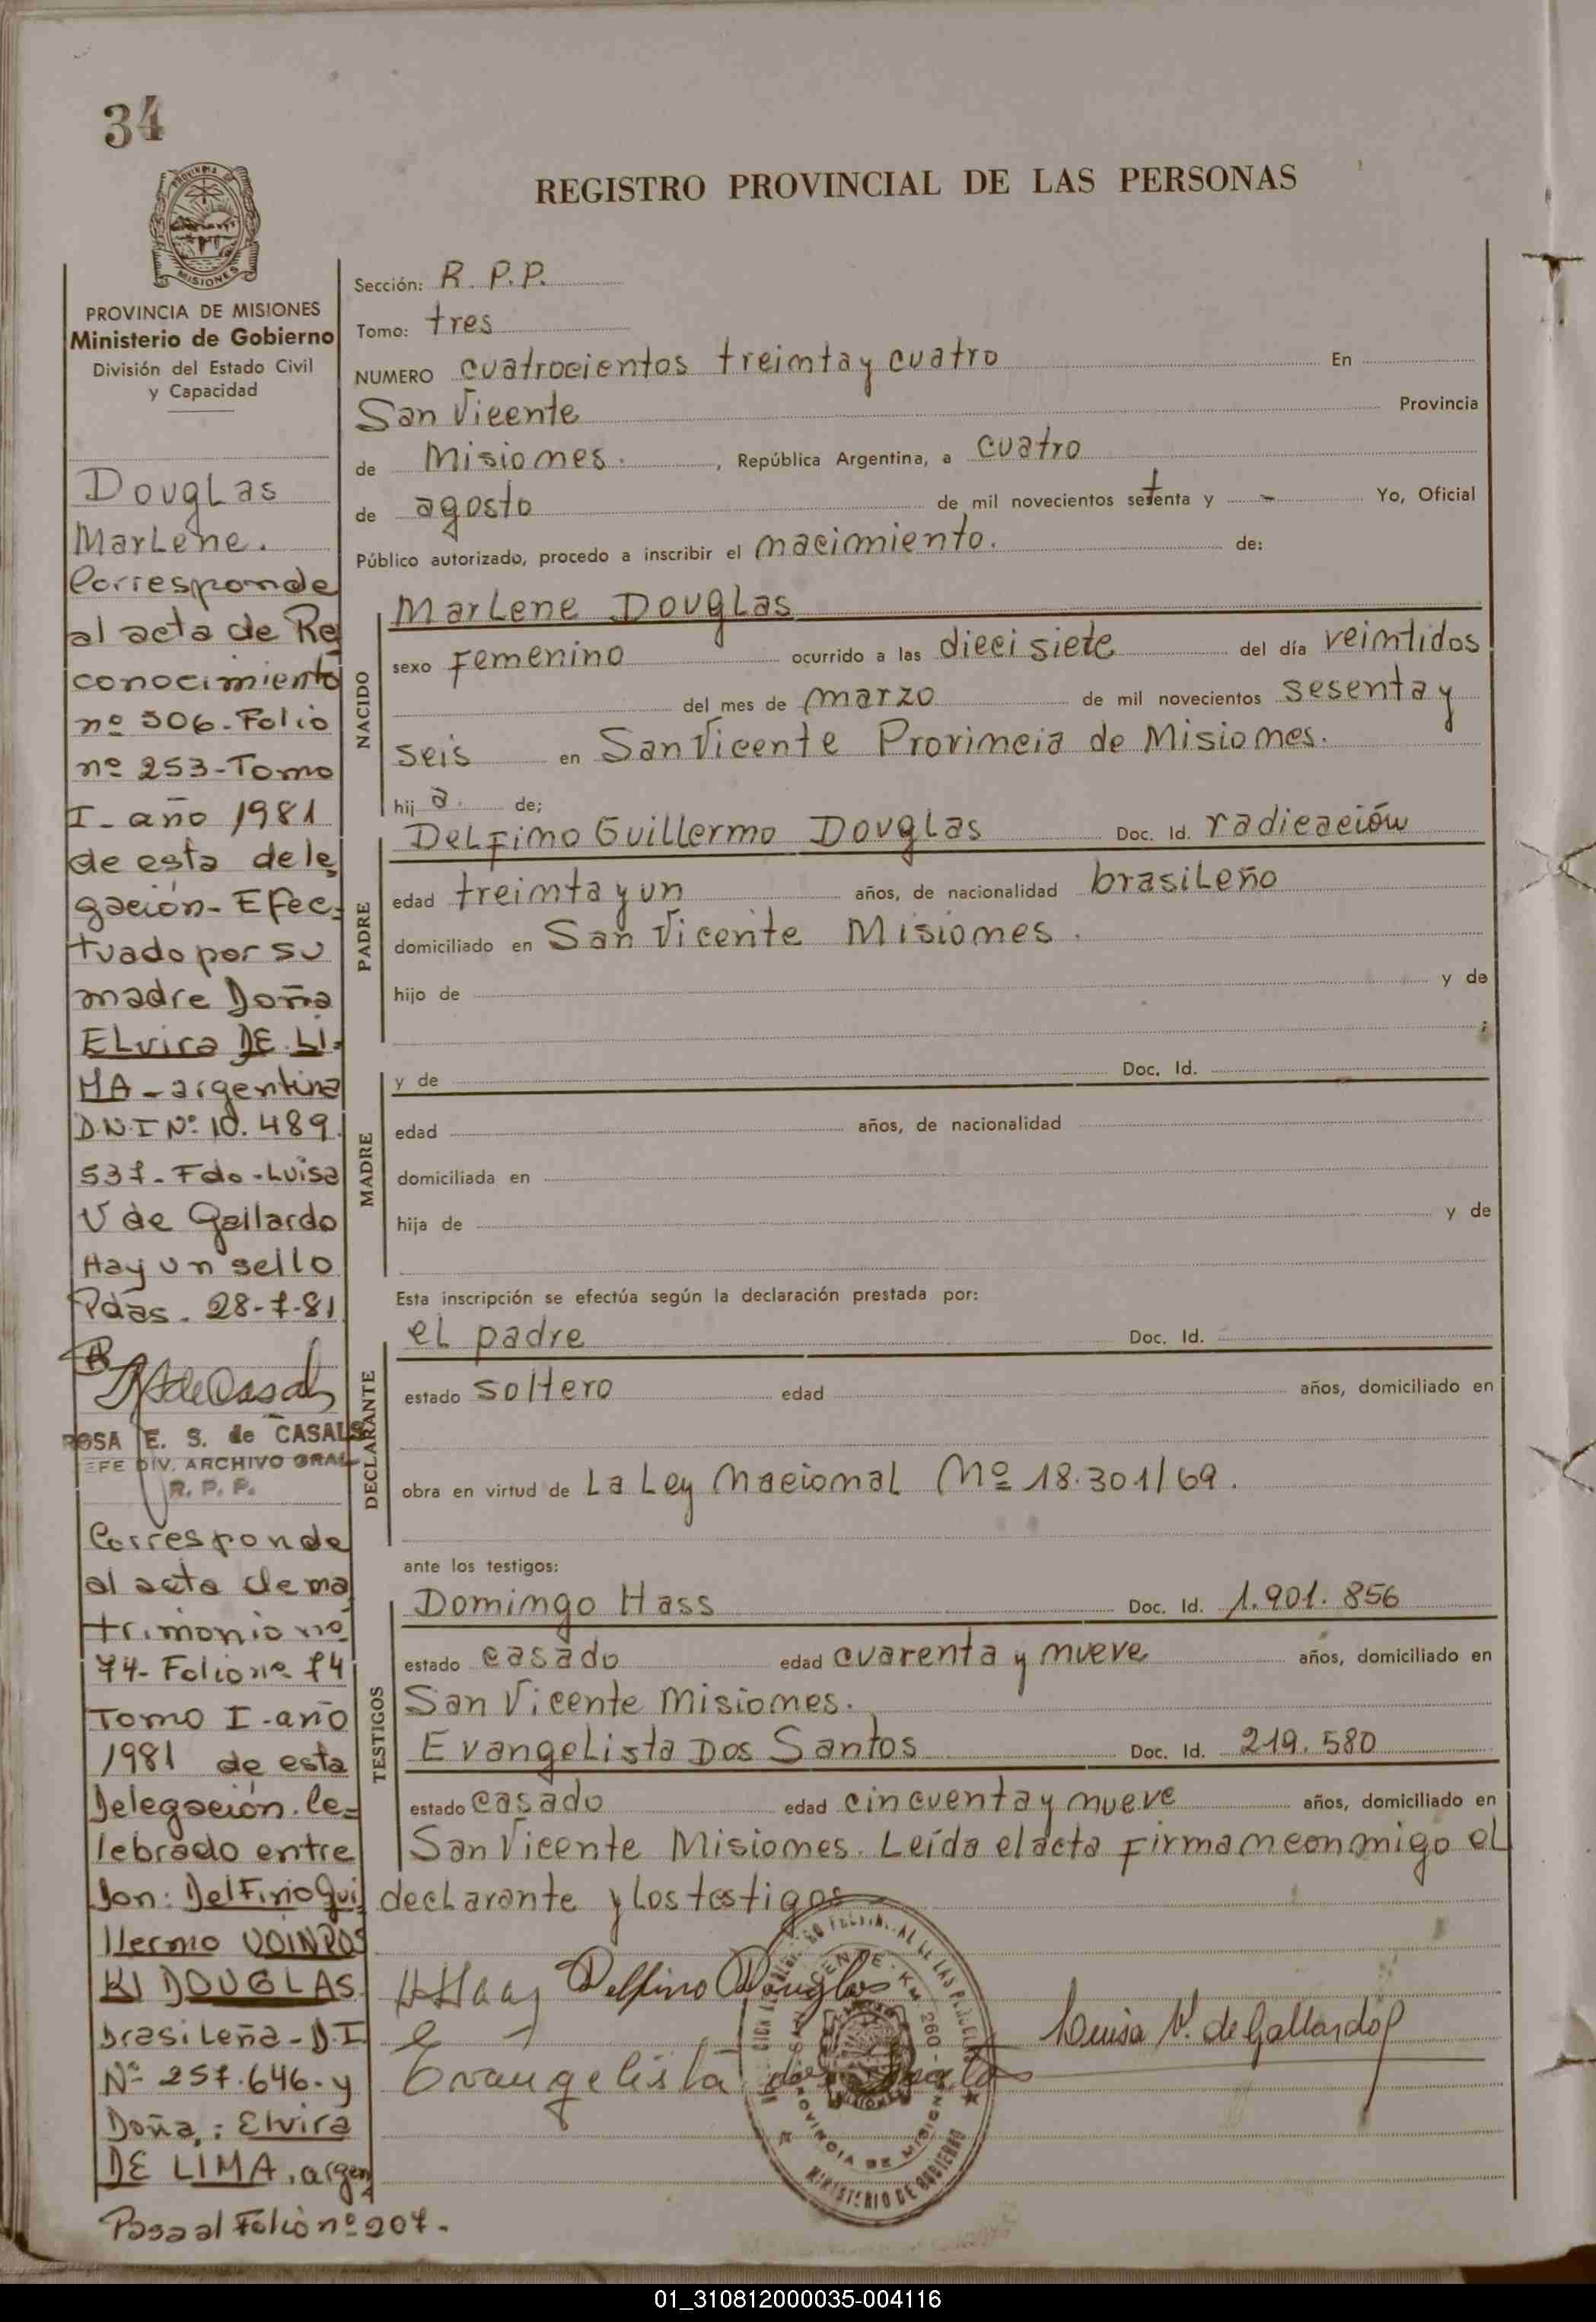 34
REGISTRO PROVINCIAL DE LAS PERSONAS
PROVINCIA DE MISIONES
Ministerio de Gobierno
División del Estado Civil
y Capacidad
Douglas
Marlene.
Corresponde
al acta de Re
conocimiento
nº 506-Folio
nº 253-Tomo
I-año 1981
de esta dele
gación-Efec-
tuado por su
madre Doña
Elvira DE LI-
MA-argentina
D.N.I Nº 10.489.
537-Fdo-Luisa
V de Gallardo
Hay un sello
Pdas. 28-7-81
ROSA E. S. de CASALS
JEFE DIV. ARCHIVO GRAL
R. P. P.
Corresponde
al acta de ma
trimonio nº
74-Folio nº 74
Tomo I-año
1981 de esta
Delegación. Ce-
lebrado entre
Don: Delfino Gui
llermo VOINROS
KI DOUGLAS
brasileña-D.I
Nº 257.646-y
Doña: Elvira
DE LIMA, argen
Pasa al Folio nº 207.
Sección: R. P.P.
Tomo: tres
NUMERO cuatrocientos treinta y cuatro En
San Vicente Provincia
de Misiones. , República Argentina, a cuatro
de agosto de mil novecientos setenta y - Yo, Oficial
Público autorizado, procedo a inscribir el nacimiento. de:
NACIDO
Marlene Douglas
sexo Femenino ocurrido a las diecisiete del día veintidos
del mes de marzo de mil novecientos sesenta y
seis en San Vicente Provincia de Misiones.
hij a. de;
PADRE
Delfino Guillermo Douglas Doc. Id. radicación
edad treinta y un años, de nacionalidad brasileño
domiciliado en San Vicente Misiones.
hijo de y de
;
MADRE
y de Doc. Id.
edad años, de nacionalidad
domiciliada en
hija de y de
Esta inscripción se efectúa según la declaración prestada por:
DECLARANTE
el padre Doc. Id.
estado soltero edad años, domiciliado en
obra en virtud de La Ley Nacional Nº 18.301/69.
ante los testigos:
TESTIGOS
Domingo Hass Doc. Id. 1.901.856
estado casado edad cuarenta y nueve años, domiciliado en
San Vicente Misiones.
Evangelista Dos Santos Doc. Id. 219.580
estado casado edad cincuenta y nueve años, domiciliado en
San Vicente Misiones. Leída el acta firman conmigo el
declarante y los testigos
Delfino Douglas
Luisa V. de Gallardo
Evangelista dos
PROVINCIA DE MISIONES
MINISTERIO DE GOBIERNO
01_310812000035-004116